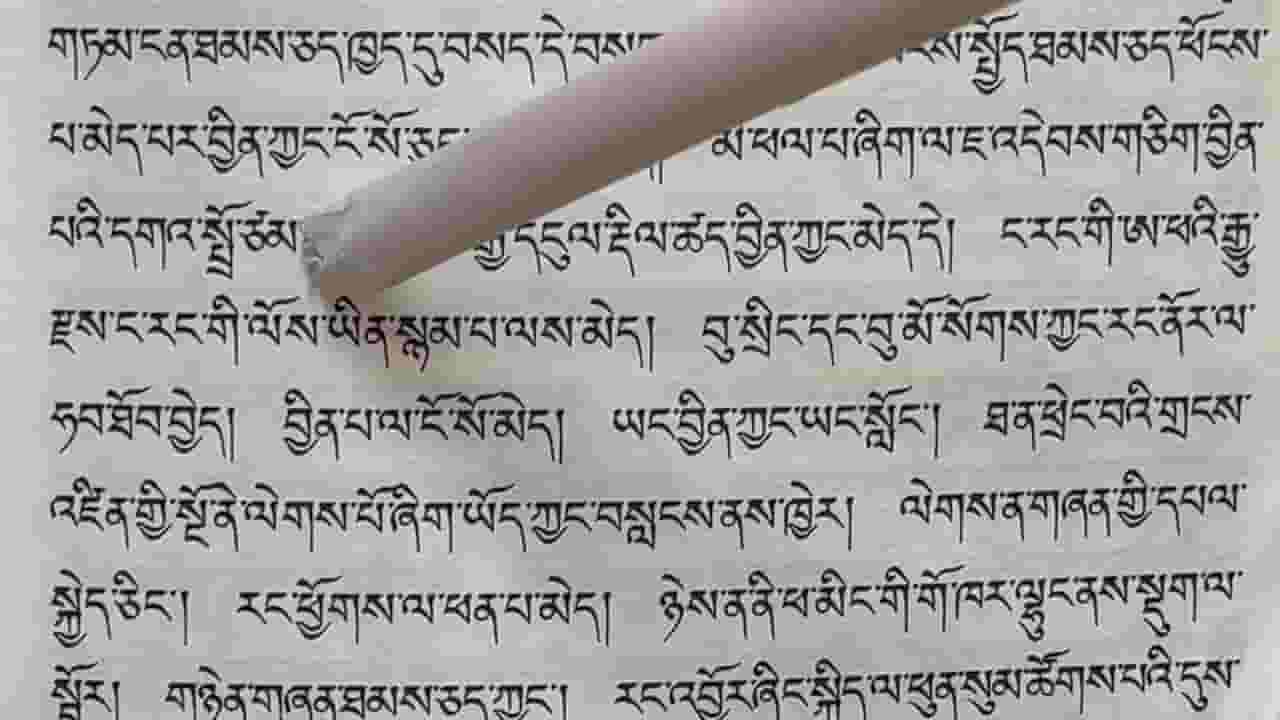 གཏམ་ངན་ཐམས་ཅད་ཁྱད་དུ་བསད་དེ་བས སྤྱོད་ཐམས་ཅད་ཕོངས་
པ་མེད་པར་བྱིན་ཀྱང་ངོ་སོ་ཅུང་ མ་ཕལ་པ་ཞིག་ལ་ཇ་འདེབས་གཅིག་བྱིན་
པའི་དགའ་སྤྲོ་ཙམ དངུལ་རྡིལ་ཚད་བྱིན་ཀྱང་མེད་དེ། ང་རང་གི་ཨ་ཕའི་རྒྱུ་
རྫས་ང་རང་གི་ལོས་ཡིན་སྙམ་པ་ལས་མེད། བུ་སྲིང་དང་བུ་མོ་སོགས་ཀྱང་རང་ནོར་ལ་
ཧབ་ཐོབ་བྱེད། བྱིན་པ་ལ་ངོ་སོ་མེད། ཡང་བྱིན་ཀྱང་ཡང་སློང་། ཐན་ཕྲེང་བའི་གྲངས་
འཛིན་གྱི་སྡོ་ནེ་ལེགས་པོ་ཞིག་ཡོད་ཀྱང་བསླངས་ནས་ཁྱེར། ལེགས་ན་གཞན་གྱི་དཔལ་
སྐྱེད་ཅིང་། རང་ཕྱོགས་ལ་ཕན་པ་མེད། ཉེས་ན་ནི་ཕ་མིང་གི་གོ་ཁར་ལྷུང་ནས་སྡུག་ལ་
སྦྱོར། གཉེན་གཞན་ཐམས་ཅད་ཀྱང་། རང་འབྱོར་ཞིང་སྐྱིད་ལ་ཕུན་སུམ་ཚོགས་པའི་དུས་